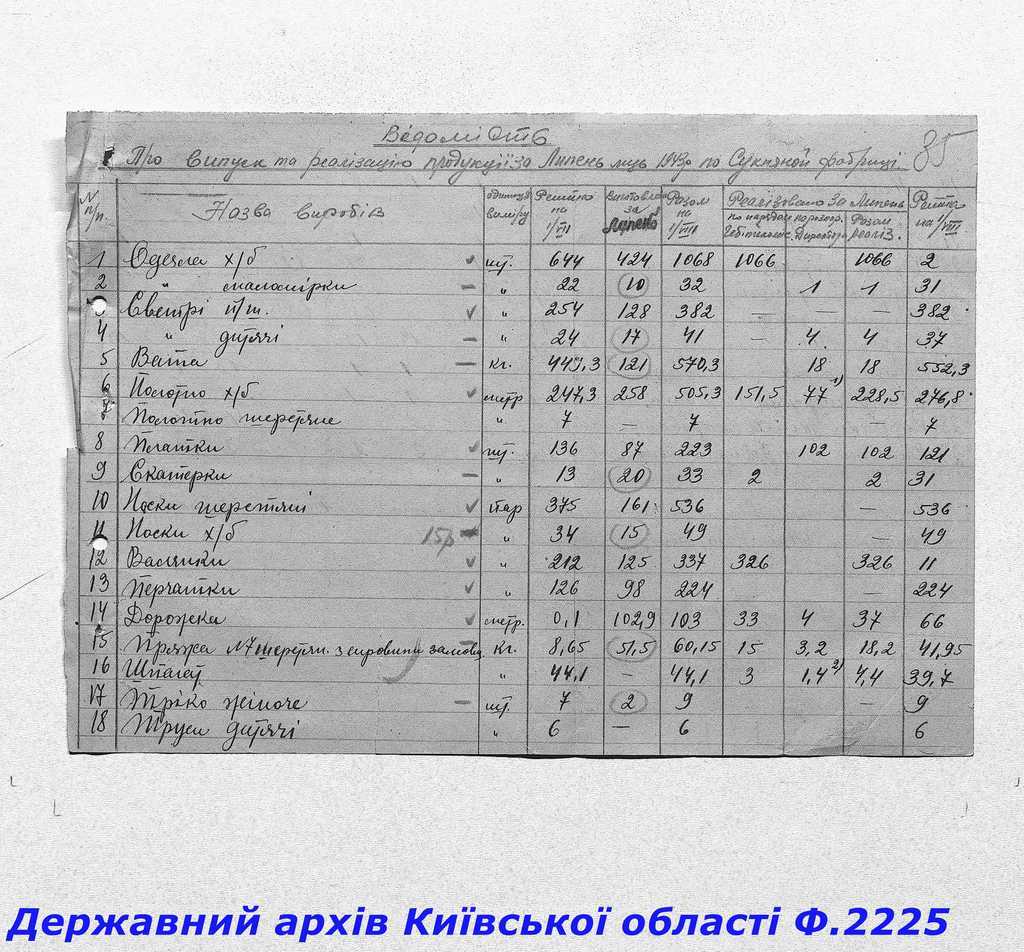 Відомість
Про випуск та реалізацію продукції за Липень м-ць 1943 по Суконной фабриці. 85
N п/п. Назва виробів одиниця виміру Решта на 1/VII Виготовлено за Липень Разом на 1/VIII Реализовано за Липень Решта на 1/VIII
по нарядам розпор. Директора Разом реаліз.
1 Одеяла х/б шт. 644 424 1068 1066 1066 2
2 " маломірки " 22 10 32 1 1 31
Светрі п/ш. " 254 128 382 — — — 382
4 " дитячі " 24 17 41 — 4 4 37
5 Вата кг. 449,3 121 570,3 18 18 552,3
6 Полотно х/б метр 247,3 258 505,3 151,5 77 1) 228,5 276,8
7 Полотно шерстяне " 7 — 7 — 7
8 Платки шт. 136 87 223 102 102 121
9 Скатерки " 13 20 33 2 2 31
10 Носки шерстяні пар 375 161 536 — 536
11 Носки х/б 15р " 34 15 49 — 49
12 Валянки " 212 125 337 326 326 11
13 Перчатки " 126 98 224 — 224
14 Дорожки метр. 0,1 102,9 103 33 4 37 66
15 Пряжа N7 шерстян. з сировини замовц. кг. 8,65 51,5 60,15 15 3,2 18,2 41,95
16 Шпагат " 44,1 — 44,1 3 1,4 2) 4,4 39,7
17 Тріко жіноче шт. 7 2 9 — 9
18 Труси дитячі " 6 — 6 6
Державний архів Київської області Ф.2225